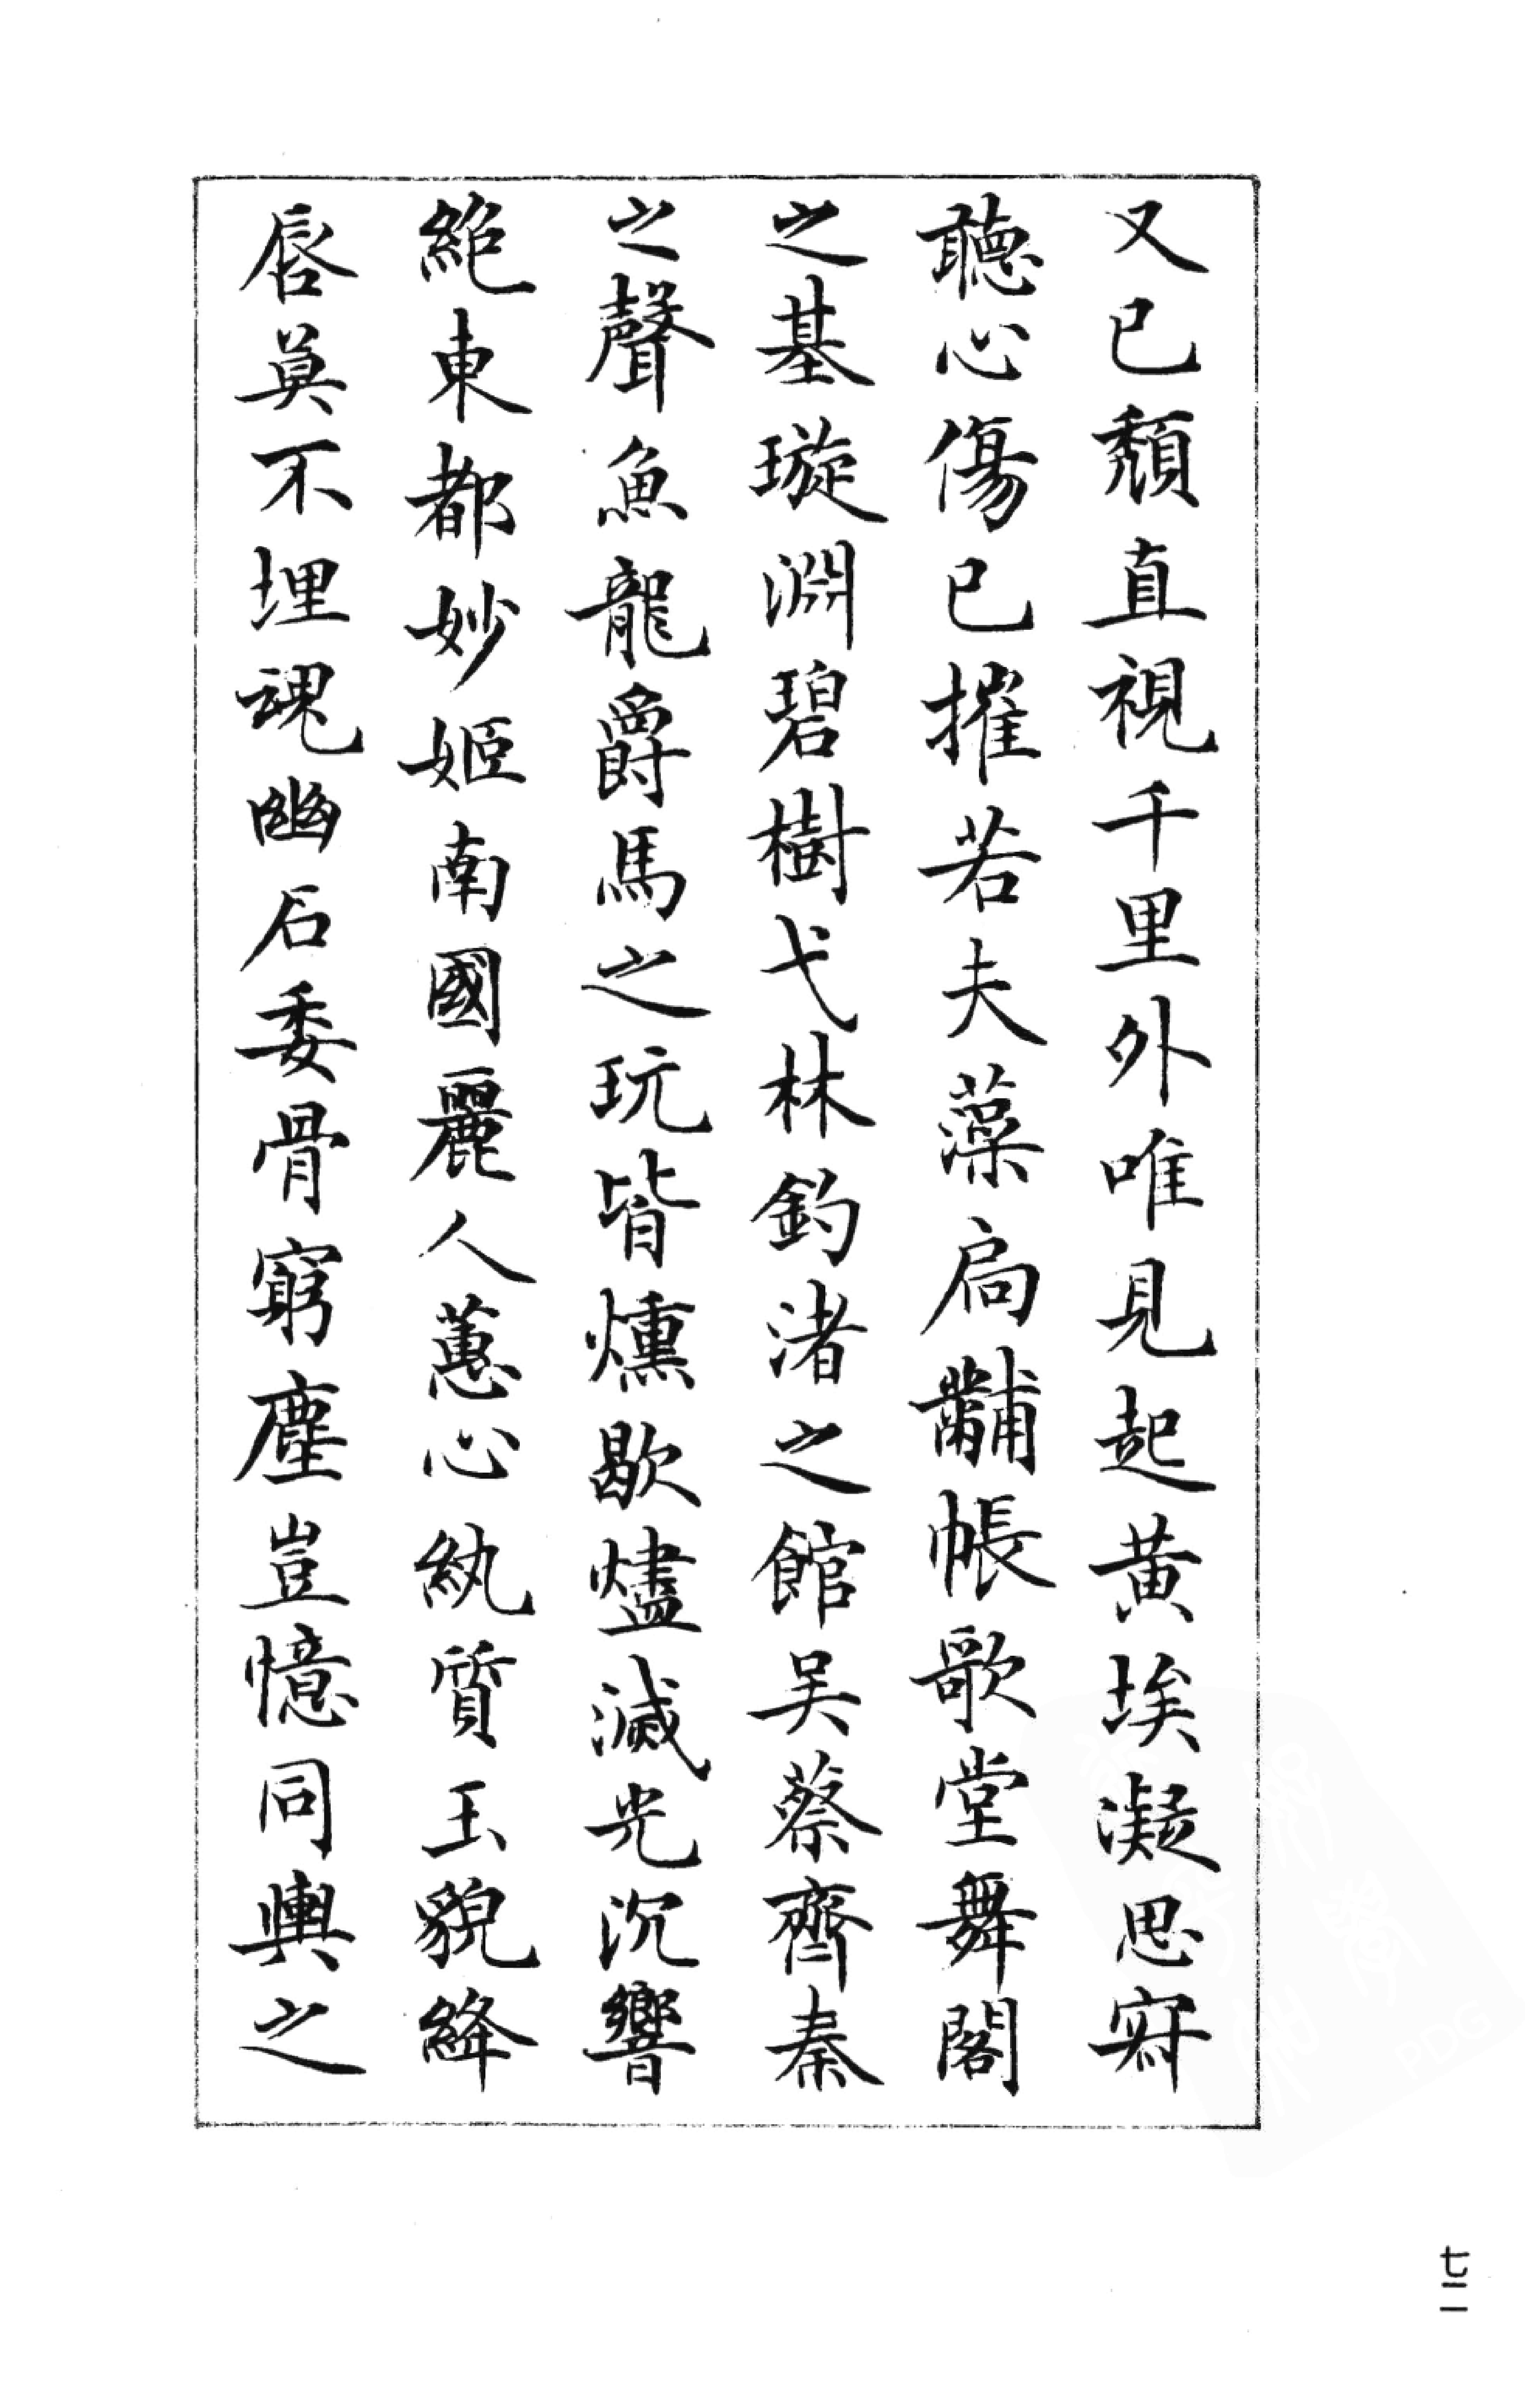 又已頹直視千里外唯見起黃埃凝思寂
聽心傷已摧若夫藻扃黼帳歌堂舞閣
之基璇淵碧樹弋林釣渚之館吳蔡齊秦
之聲魚龍爵馬之玩皆燻歇燼滅光沉響
絕東都妙姬南國麗人蕙心紈質玉貌絳
唇莫不埋魂幽石委骨窮塵豈憶同輿之
七二